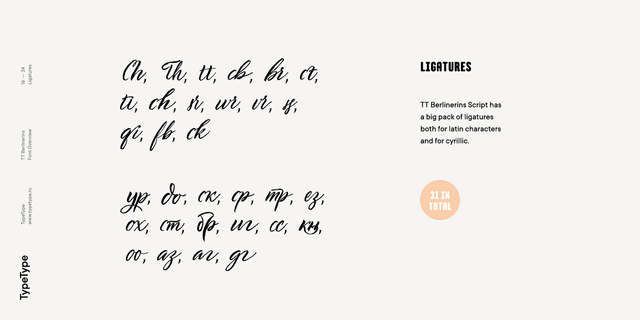 16 — 24
Ligatures
TT Berlinerins
Font Overview
TypeType
www.typetype.ru
TypeType
Ch, Th, tt, cb, br, ct,
ti, ch, sr, wr, vr, ss,
qi, fb, ck
ур, до, ск, ср, тр, ез,
ох, ст, бр, иг, сс, кн,
оо, аз, аг, дг
LIGATURES
TT Berlinerins Script has
a big pack of ligatures
both for latin characters
and for cyrillic.
31 IN
TOTAL